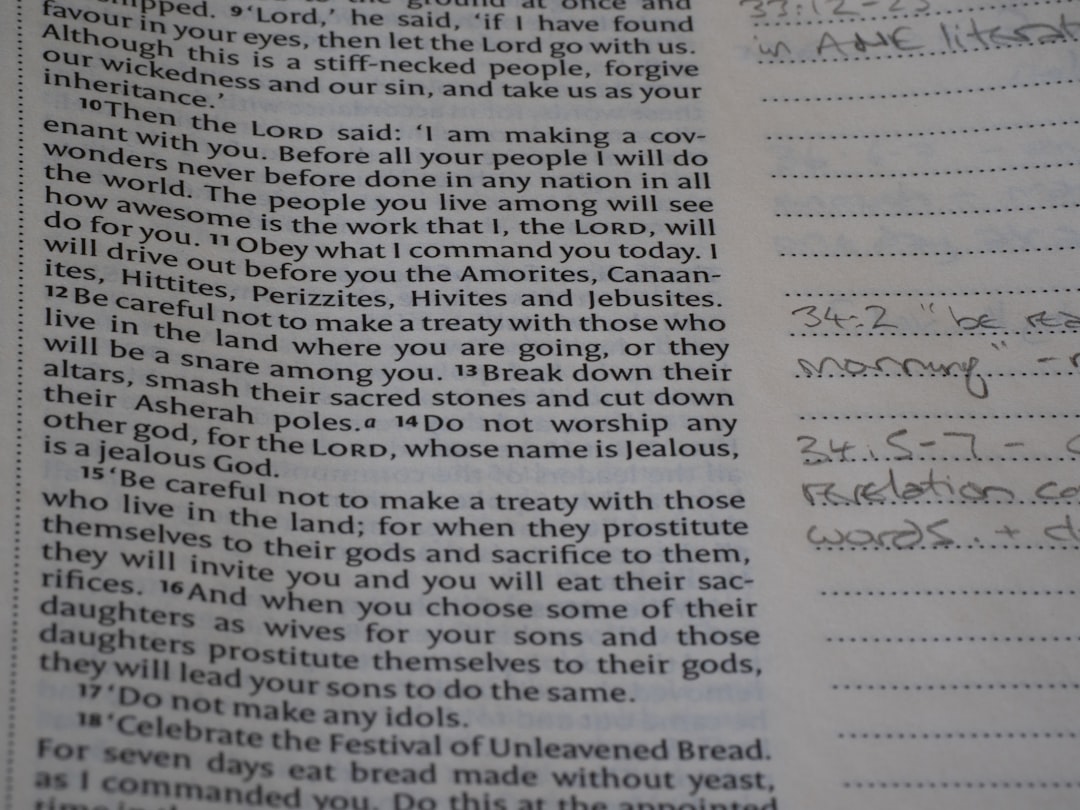 the ground at once and
favour in your eyes, then let the Lord go with us.
Although this is a stiff-necked people, forgive
our wickedness and our sin, and take us as your
inheritance.’
10 Then the LORD said: ‘I am making a cov-
enant with you. Before all your people I will do
wonders never before done in any nation in all
the world. The people you live among will see
how awesome is the work that I, the LORD, will
do for you. 11 Obey what I command you today. I
will drive out before you the Amorites, Canaan-
ites, Hittites, Perizzites, Hivites and Jebusites.
12 Be careful not to make a treaty with those who
live in the land where you are going, or they
will be a snare among you. 13 Break down their
altars, smash their sacred stones and cut down
their Asherah poles.a 14 Do not worship any
other god, for the LORD, whose name is Jealous,
is a jealous God.
15 ‘Be careful not to make a treaty with those
who live in the land; for when they prostitute
themselves to their gods and sacrifice to them,
they will invite you and you will eat their sac-
rifices. 16 And when you choose some of their
daughters as wives for your sons and those
daughters prostitute themselves to their gods,
they will lead your sons to do the same.
17 ‘Do not make any idols.
18 ‘Celebrate the Festival of Unleavened Bread.
For seven days eat bread made without yeast,
as I commanded you. Do this at the appointed
33:12-23
in ANE
34:2 "be
morning" -
34:5-7 -
revelation
words. +